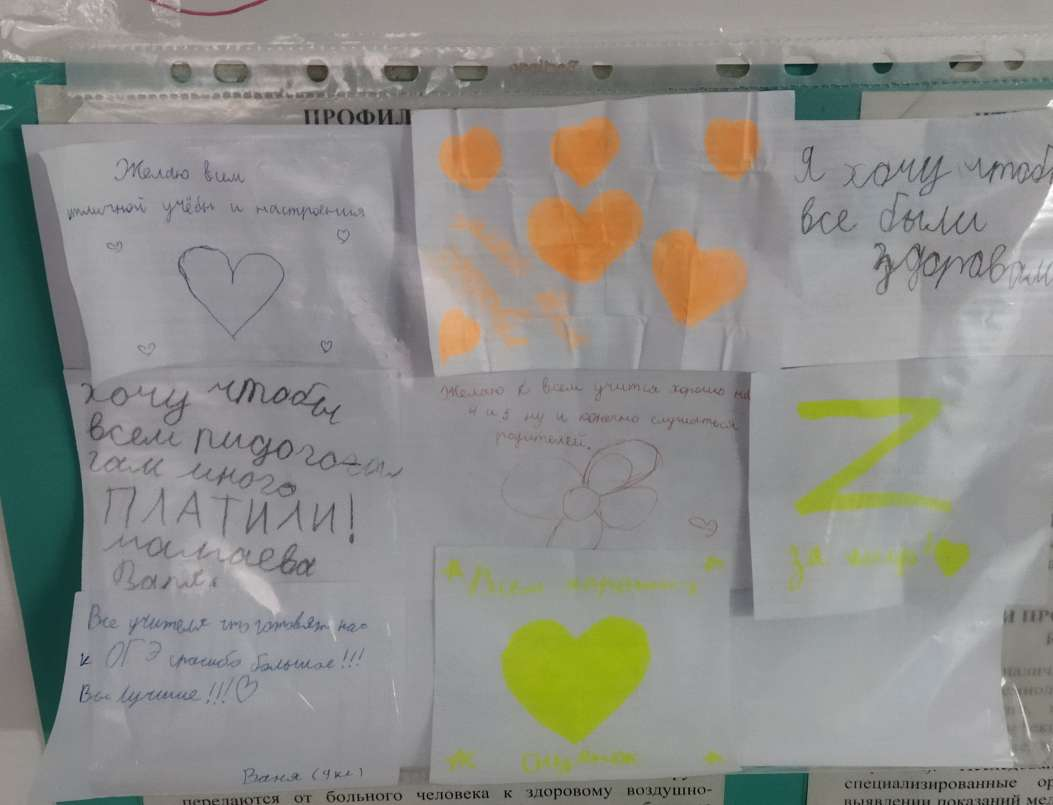 ПРОФИЛ
Желаю всем
отличной учёбы и настроения
Я хочу чтобы
все были
здоровы
хочу чтобы
всем пидогогам
много
ПЛАТИЛИ!
мамаева
Ваня.
Желаю к всем учится хорошо на
4 и 5 ну и конечно слушаться
родителей.
Z
за мир!
Все учителя что готовят нас
к ОГЭ спасибо большое!!!
Вы лучшие!!!
Ваня (9 кл)
Всем хороших
Оценок
передаются от больного человека к здоровому воздушно-
специализированные ор
выявлении показаний мед